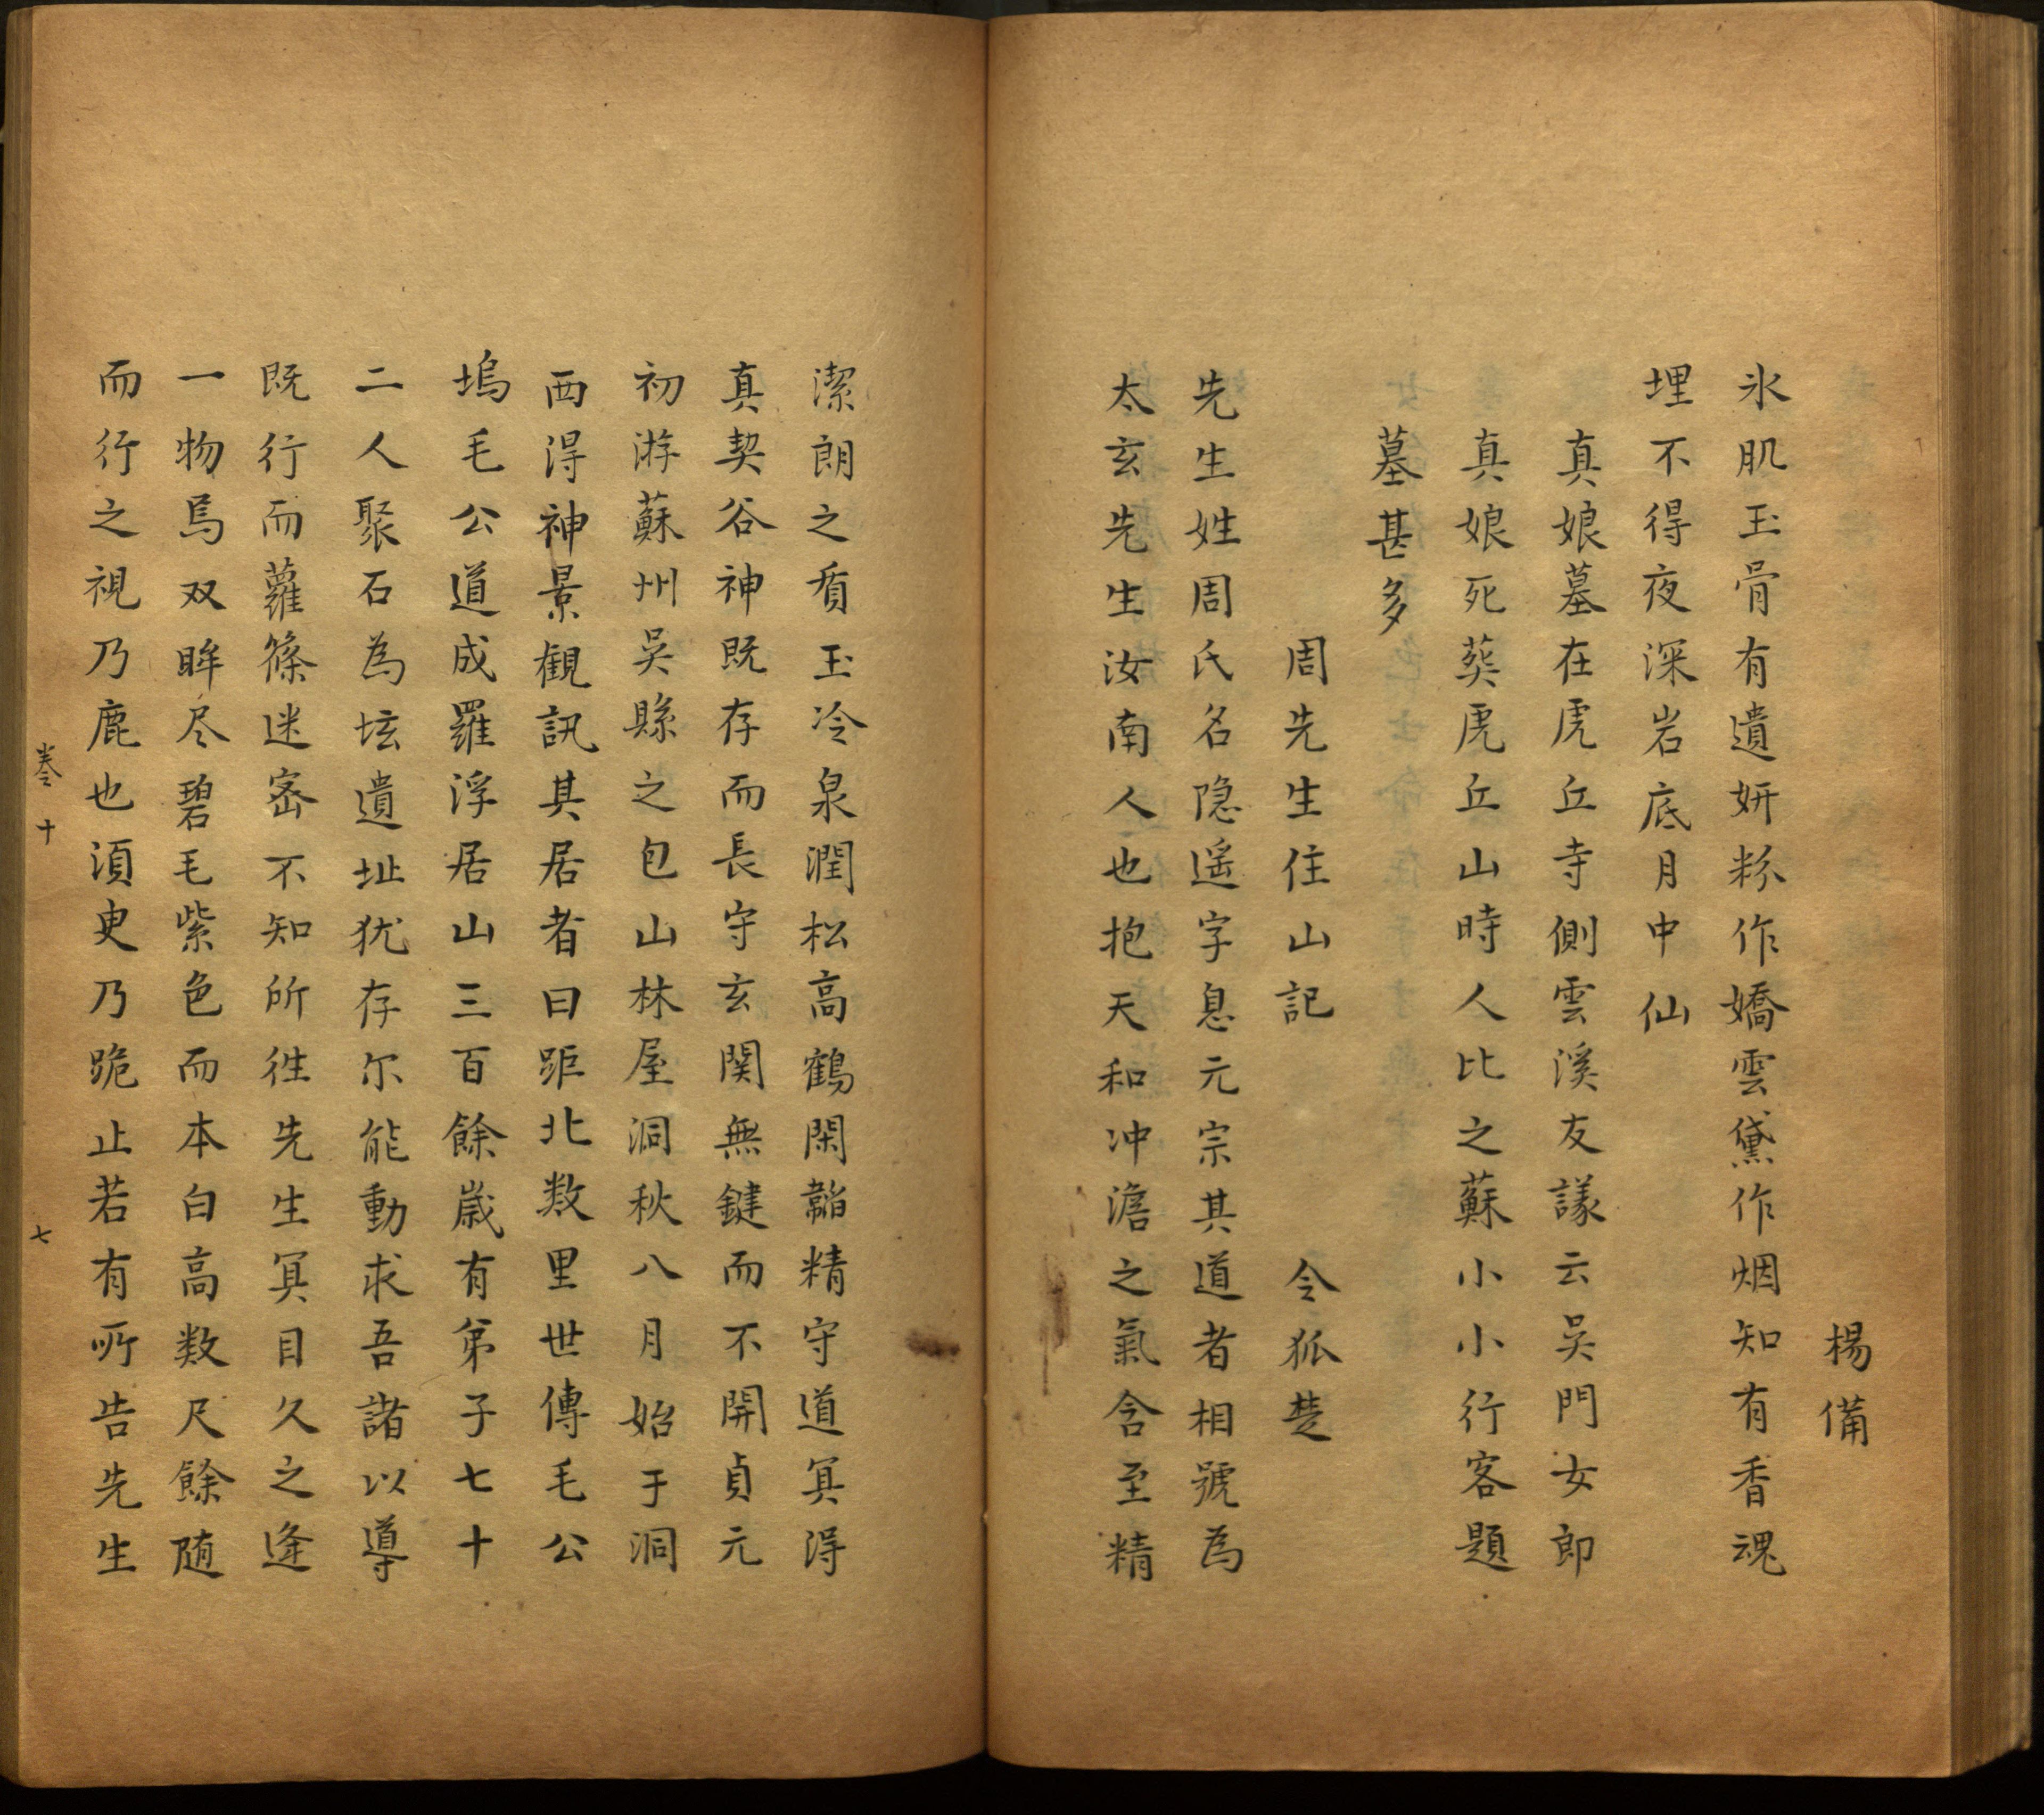 楊備
氷肌玉骨有遺妍粉作嬌雲黛作烟知有香魂
埋不得夜深岩底月中仙
真娘墓在虎丘寺側雲溪友議云吳門女郎
真娘死葵虎丘山時人比之蘇小小行客題
墓甚多
周先生住山記 令狐楚
先生姓周氏名隐遥字息元宗其道者相號為
太玄先生汝南人也抱天和冲澹之氣含至精
潔朗之質玉冷泉潤松高鶴閑韜精守道冥得
真契谷神既存而長守玄関無鍵而不開貞元
初游蘇州吳縣之包山林屋洞秋八月始于洞
西得神景観訊其居者曰距北数里世傳毛公
塢毛公道成羅浮居山三百餘歲有弟子七十
二人聚石為坛遺址犹存尔能動求吾諸以導
既行而蘿篠迷宻不知所徃先生冥目久之逢
一物焉双眸尽碧毛紫色而本白高数尺餘随
而行之視乃鹿也湏臾乃跪止若有所告先生
卷十 七